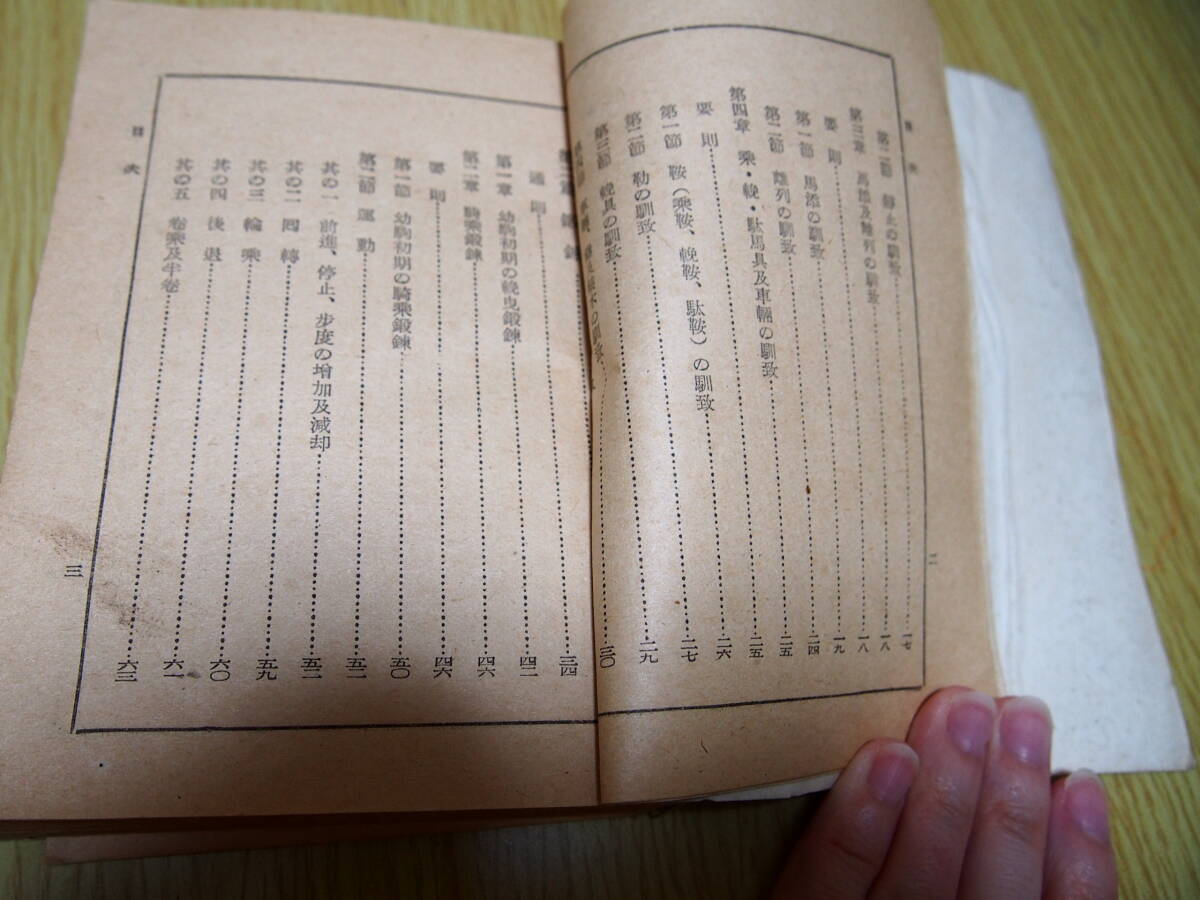 目次
第二節 靜止の馴致 一七
第三章 馬添及離列の馴致 一八
要則 一八
第一節 馬添の馴致 一九
第二節 離列の馴致 二四
第四章 乘・輓・駄馬具及車輛の馴致 二五
要則 二五
第一節 鞍(乘鞍、輓鞍、駄鞍)の馴致 二六
第二節 勒の馴致 二七
第三節 輓具の馴致 二九
三〇
二
鍛錬
通則 三四
第一章 幼駒初期の輓曳鍛錬 四二
第二章 騎乘鍛錬 四六
要則 四六
第一節 幼駒初期の騎乘鍛錬 五〇
第二節 運動 五二
其の一 前進、停止、步度の增加及減却 五二
其の二 囘轉 五九
其の三 輪乘 六〇
其の四 後退 六一
其の五 卷乘及半卷 六三
目次
三